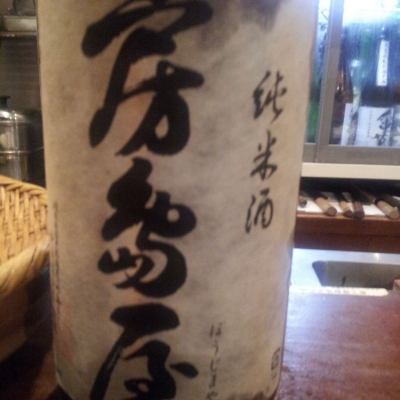 房島屋
純米酒
ぼうじまや